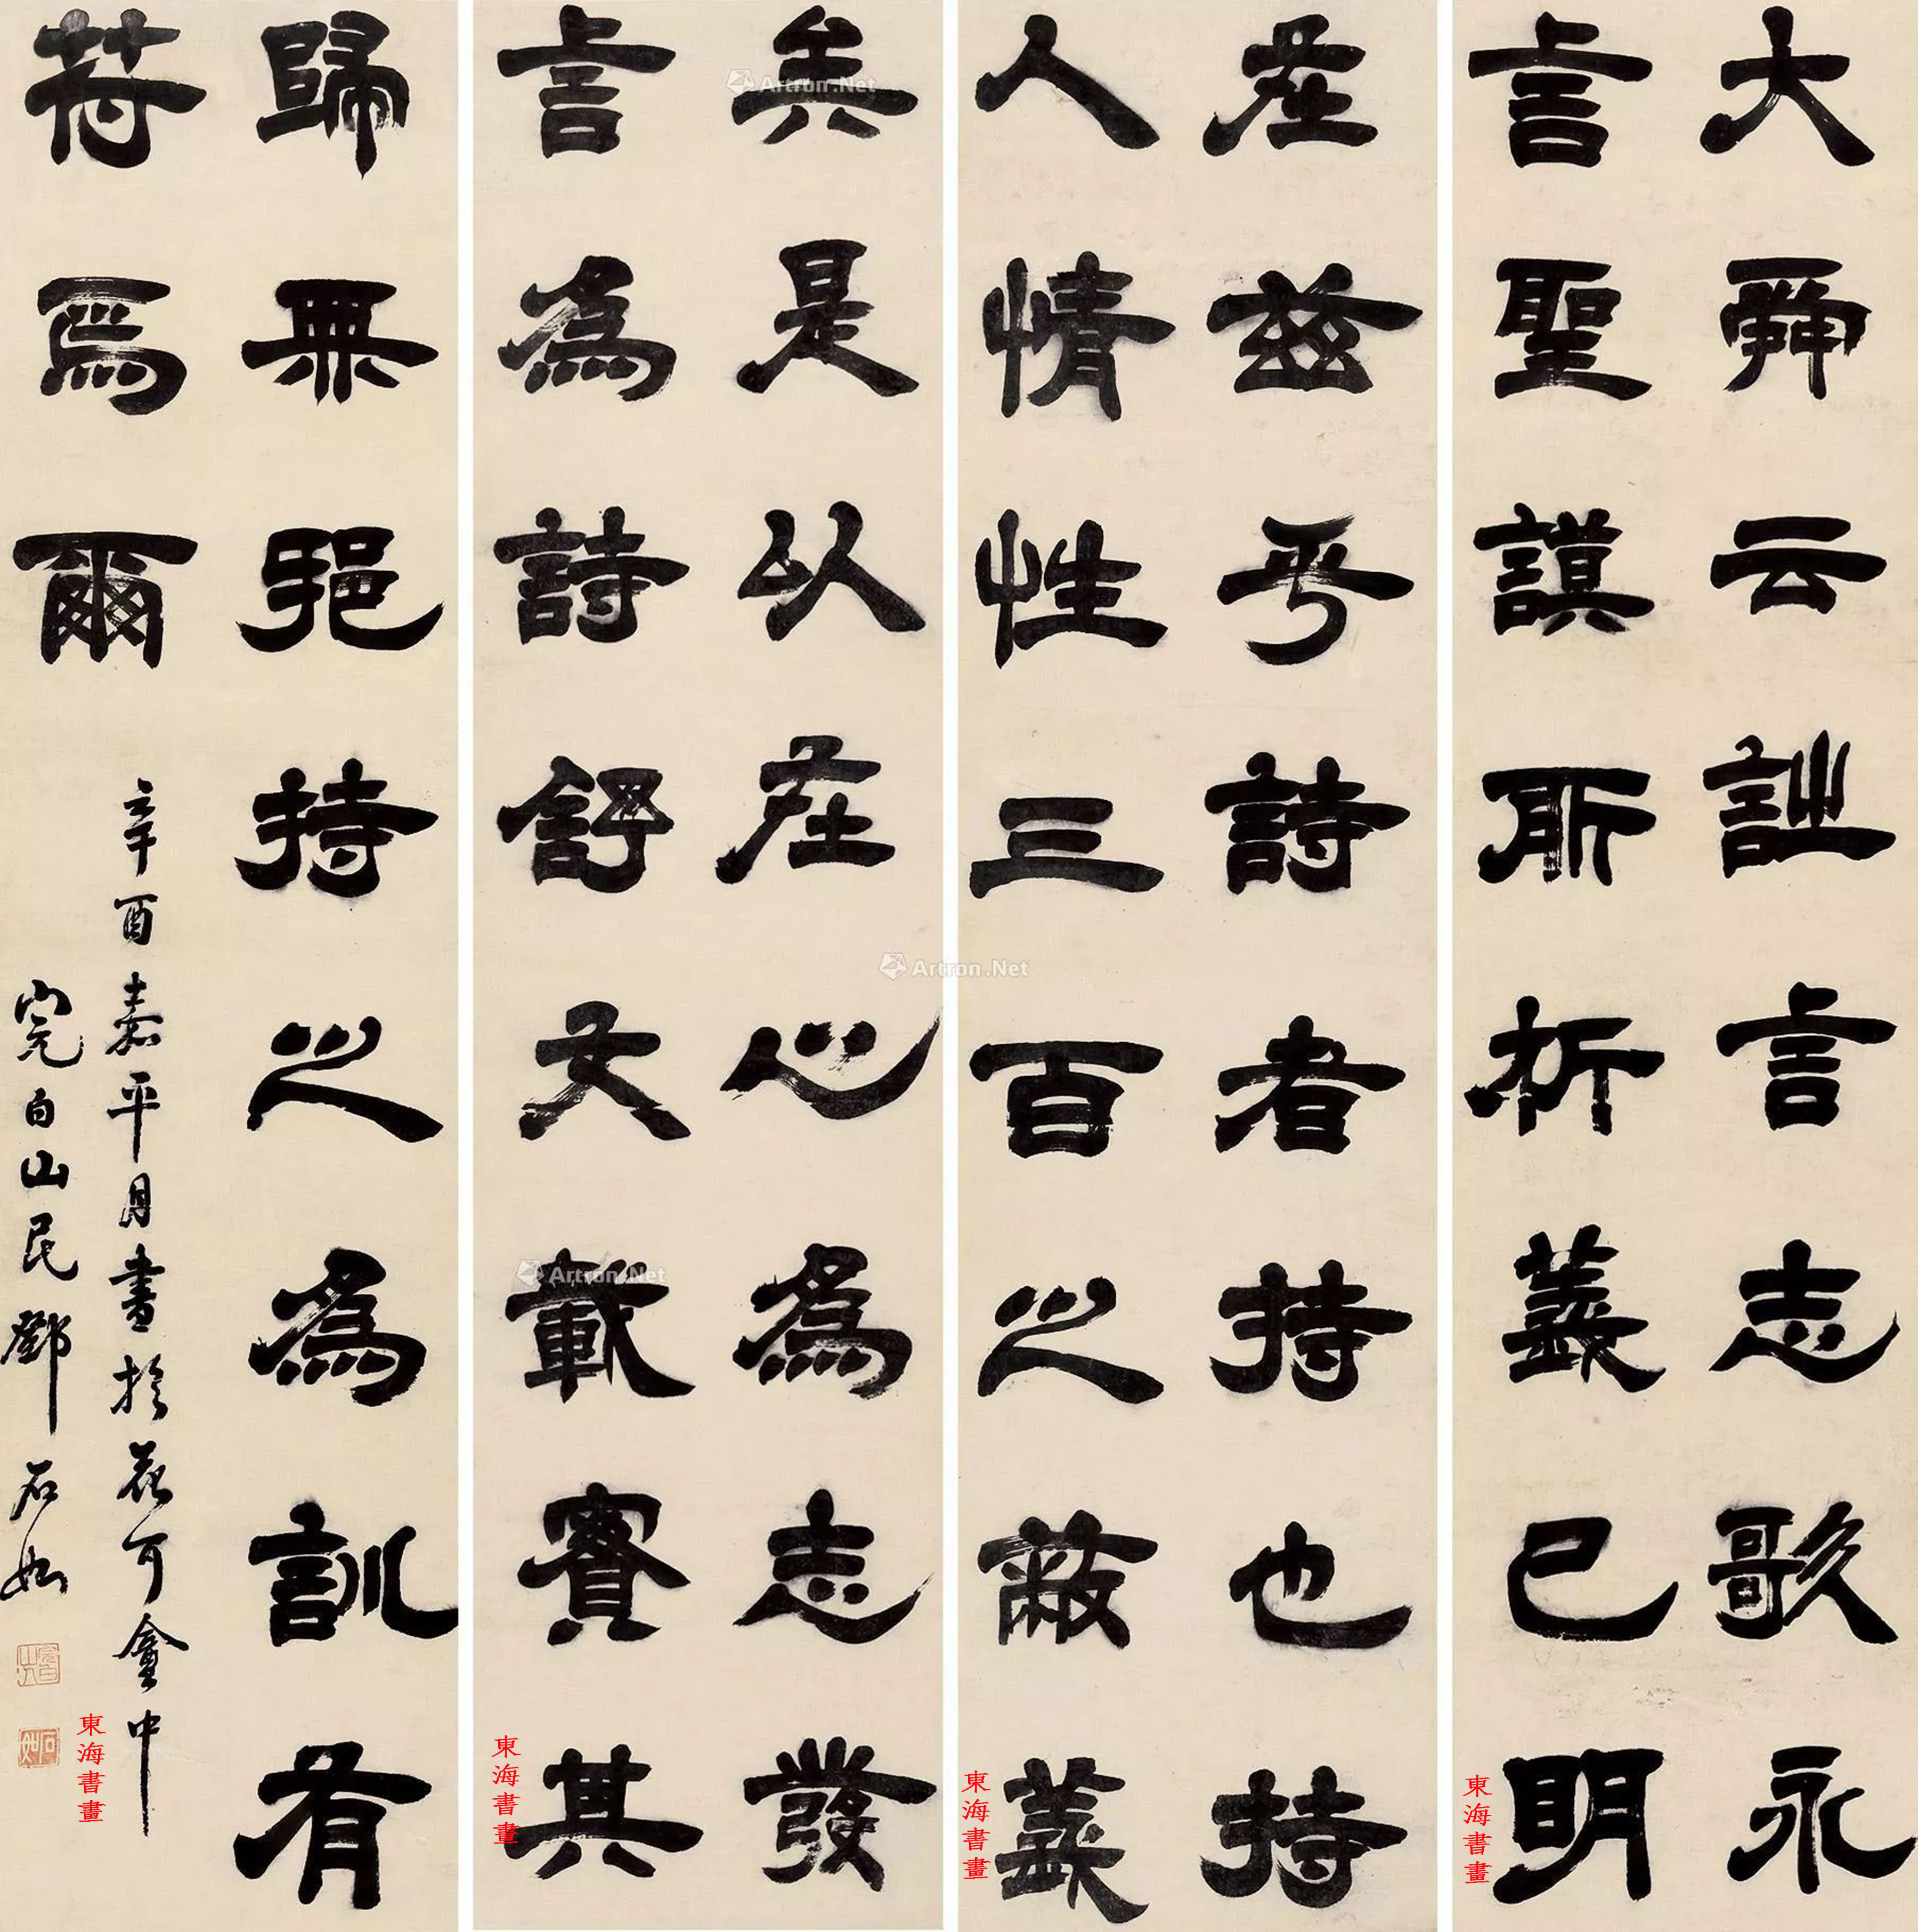 大舜云詩言志歌永
言聖謨所析義已明
矣是以在心為志發
言為詩舒文載實其
在茲乎詩者持也持
人情性三百之蔽義
歸無邪持之為訓有
符焉爾
辛酉嘉平月書於
完白山民鄧石如
東海書畫
東海書畫
東海書畫
東海書畫
Artron.Net
Artron.Net
Artron.Net